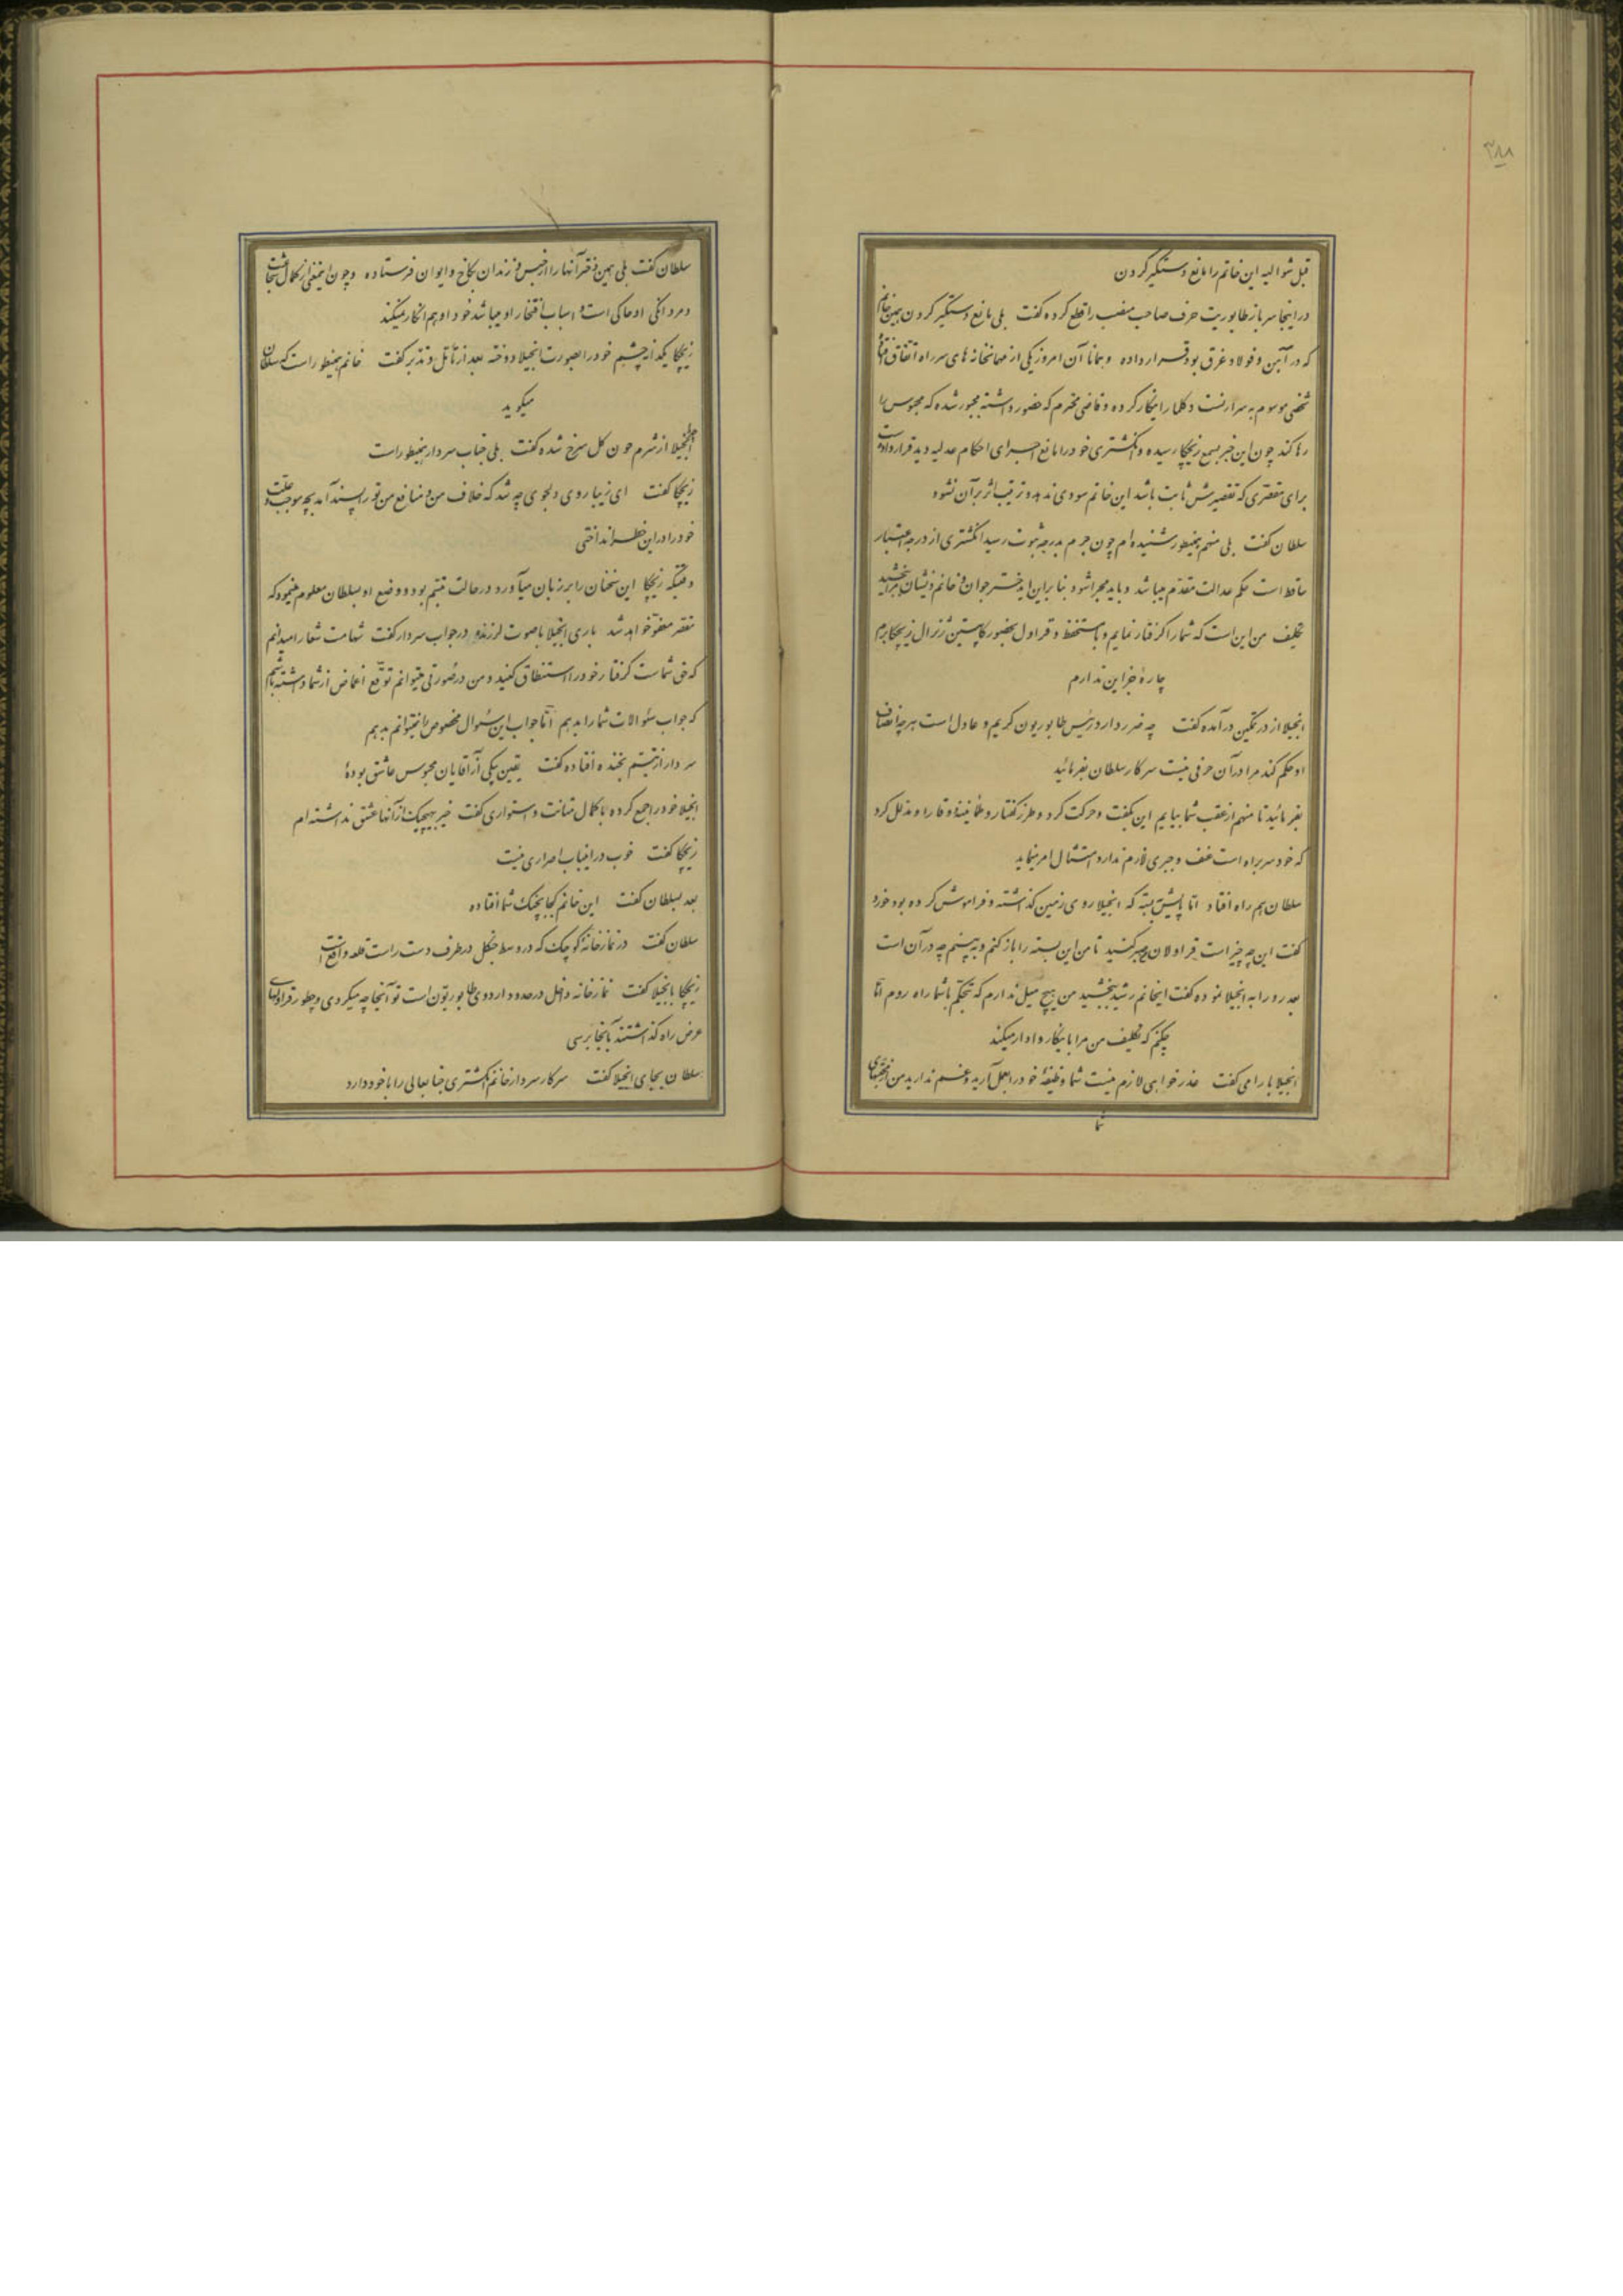 ۳۸۸
قبل شوالیه این خاتم را مانع دستگیر کردن
در اینجا سرباز طابوریت حرف صاحب منصب را قطع کرده گفت بلی مانع دستگیر کردن همین خانم
که در آهن و فولاد غرق بود قرار داده و همانا آن امروز یکی از مهمانخانه های سر راه اتفاق افتاد
شخصی موسوم به سرارنست دکلمار اینکار کرده و قاضی محترم که حضور داشته مجبور شده که محبوس را
رها کند چون این خبر بسمع زیچکا رسیده و انگشتری خود را مانع اجرای احکام عدلیه دید قرار داده است
برای مقصری که تقصیرش ثابت باشد این خاتم سودی ندهد و ترتیب اثر بر آن نشود
سلطان گفت بلی منهم همینطور شنیده ام چون جرم بدرجه ثبوت رسید انگشتری از درجه اعتبار
ساقط است حکم عدالت مقدم میباشد و باید مجرا شود بنابراین ایدختر جوان و خانم ذیشان مرا ببخشید
تکلیف من این است که شما را گرفتار نمایم و با مستحفظ و قراول بحضور کاپیتن ژنرال زیچکا برم
چارهٔ جز این ندارم
انجیلا از در تمکین درآمده گفت چه ضرر دارد رئیس طابوریون کریم و عادل است هر چه از انصاف
او حکم کند مرا در آن حرفی نیست سرکار سلطان بفرمائید
بفرمائید تا منهم از عقب شما بیایم این بگفت و حرکت کرد و طرز گفتار و طمأنینه و وقار او مدلل کرد
که خود سر براه است عنف و جبری لازم ندارد امتثال امر نماید
سلطان هم راه افتاد اما پایش بسته که انجیلا روی زمین گذاشته و فراموش کرده بود خورد
گفت این چه چیز است قراولان صبر کنید تا من این بسته را باز کنم و ببینم چه در آن است
بعد رو را به انجیلا نموده گفت ایخانم رشید ببخشید من هیچ میل ندارم که بتحکم با شما راه روم اما
چکنم که تکلیف من مرا باینکار وادار میکند
انجیلا بارامی گفت عذر خواهی لازم نیست شما وظیفهٔ خود را بعمل آرید و غم ندارید من از
سلطان گفت بلی همین دختر آنها را از حبس و زندان بکاخ و ایوان فرستاده و چون اینمعنی از کمال شجاعت
و مردانگی او حاکی است و اسباب افتخار او میباشد خود او هم انکار نمیکند
زیچکا یکدانه چشم خود را بصورت انجیلا دوخته بعد از تأمل و تدبر گفت خانم همینطور است که سلطان
میگوید
انجیلا از شرم چون گل سرخ شده گفت بلی جناب سردار همینطور است
زیچکا گفت ای زیبا روی دلجوی چه شد که خلاف من و منافع من تو را پسند آمد بچه موجب و علت
خود را در این خطر انداختی
وقتیکه زیچکا این سخنان را بر زبان میآورد در حالت تبسم بود و وضع او بسلطان معلوم مینمود که
مقصر معفو خواهد شد باری انجیلا با صوت لرزنده در جواب سردار گفت شهامت شعارا میدانم
که حق شماست گرفتار خود را استنطاق کنید و من در صورتی میتوانم توقع اغماض از شما داشته باشم
که جواب سئوالات شما را بدهم اما جواب این سئوال مخصوص را نمیتوانم بدهم
سردار از تبسم بخنده افتاده گفت یقین بیکی از آقایان محبوس عاشق بودهٔ
انجیلا خود را جمع کرده با کمال متانت و استواری گفت خیر بهیچیک از آنها عشق نداشته ام
زیچکا گفت خوب در اینباب اصراری نیست
بعد بسلطان گفت این خانم کجا بچنگ شما افتاده
سلطان گفت در نمازخانهٔ کوچک که در وسط جنگل در طرف دست راست قلعه واقع است
زیچکا بانجیلا گفت نمازخانه داخل در حدود اردوی طابوریتون است تو آنجا چه میکردی و چطور قراولهای
عرض راه گذاشتند بآنجا برسی
سلطان بجای انجیلا گفت سرکار سردار خانم انگشتری جنابعالی را با خود دارد